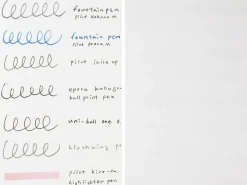 fountain pen
pilot kakuno m
fountain pen
pilot prera m
pilot juice up
epoca
ball point pen
uni-ball one
pilot
highlighter pen